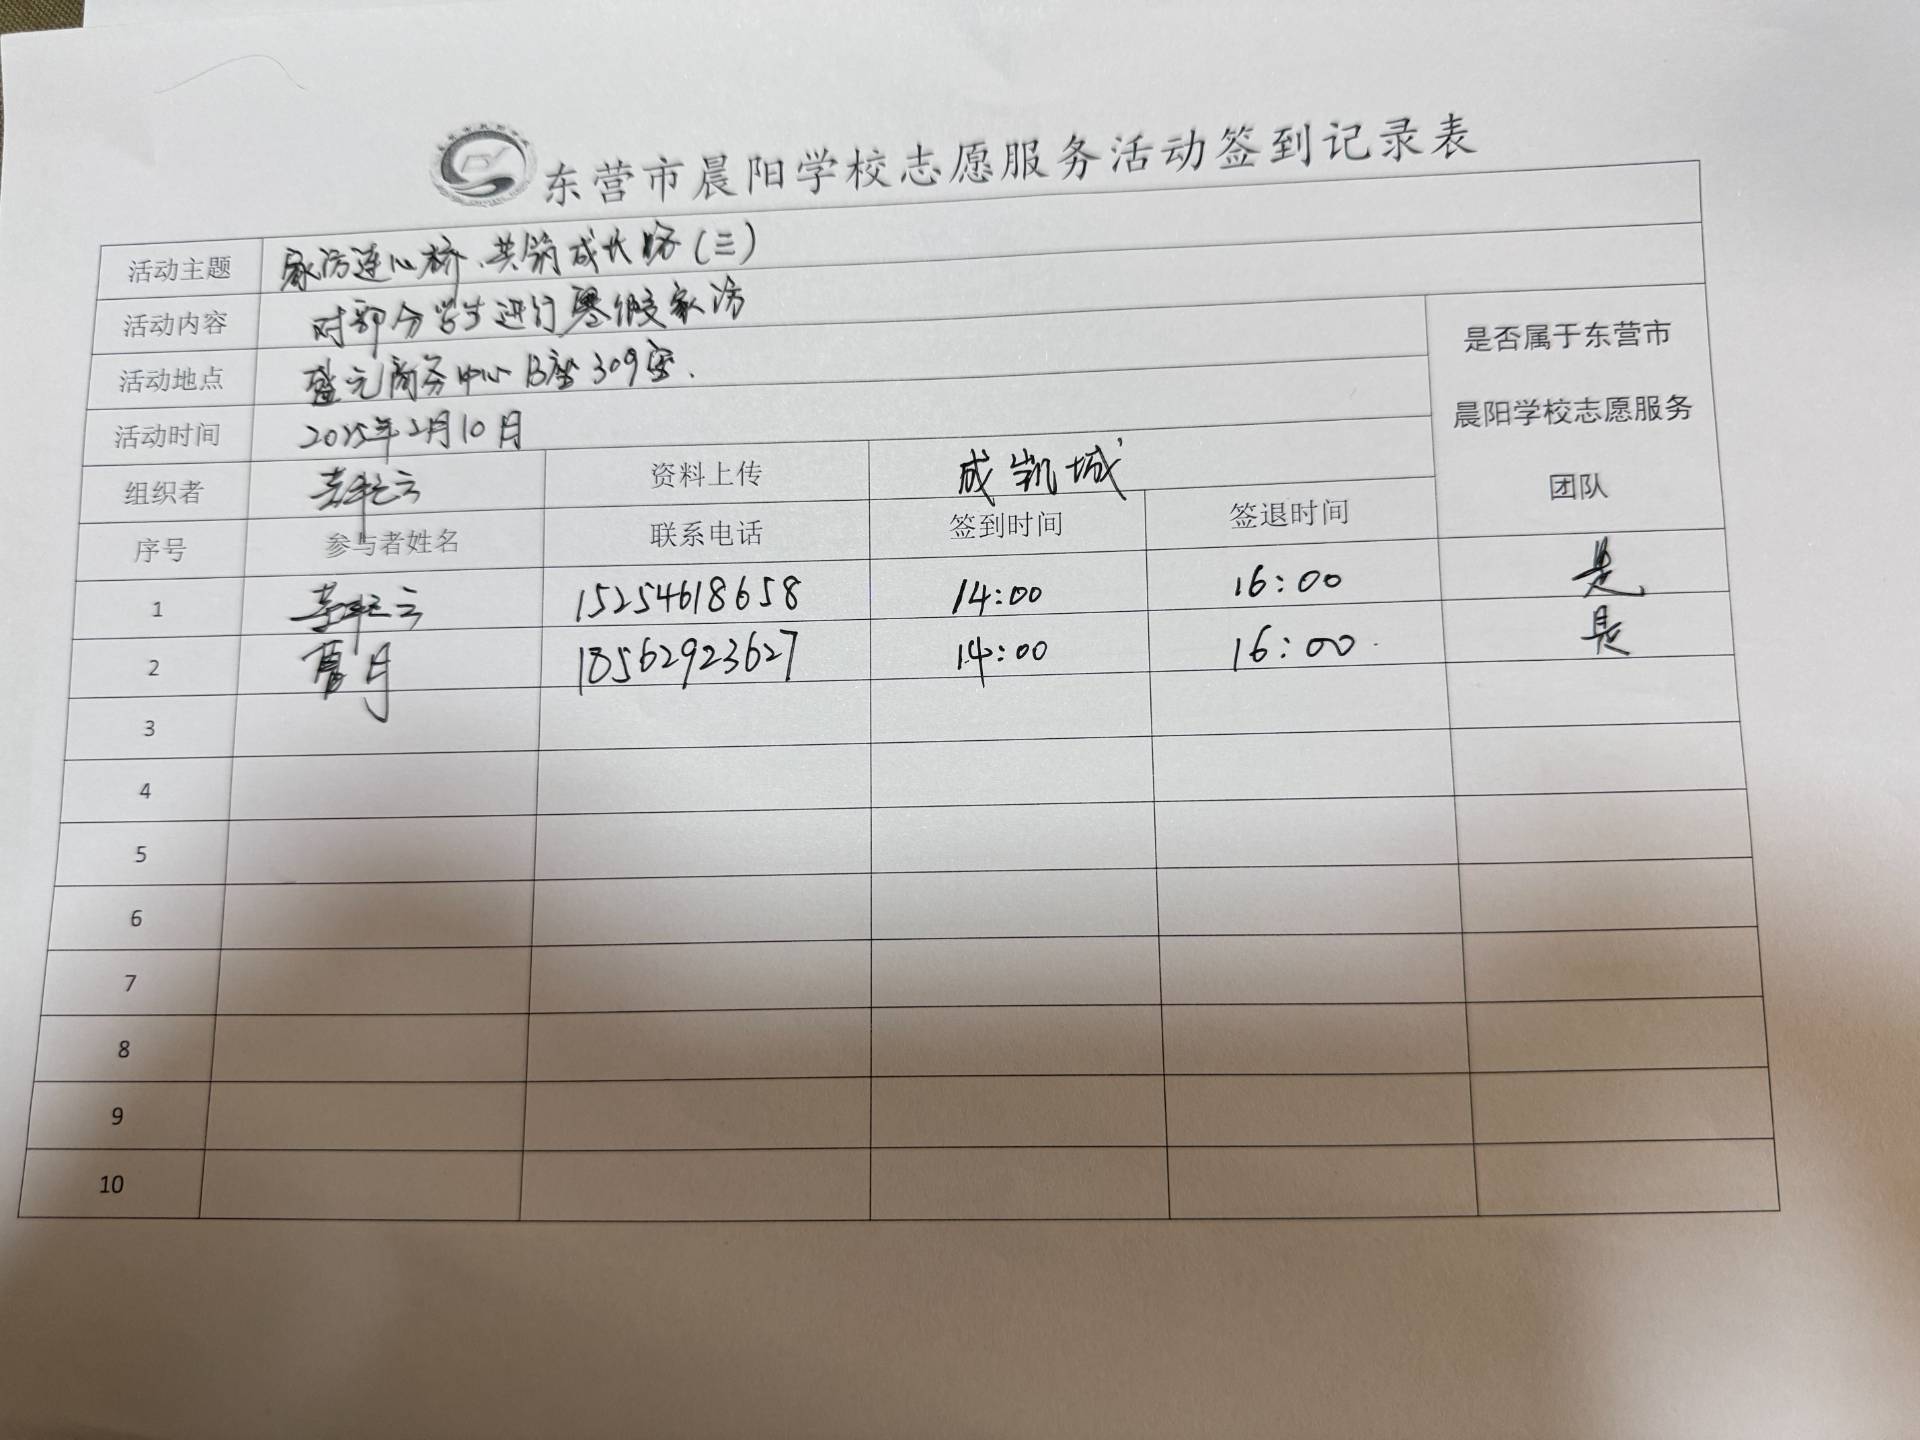 东营市晨阳学校志愿服务活动签到记录表
活动主题 家访连心桥、共筑成长路（三）
活动内容 对部分学生进行寒假家访
活动地点 盛元商务中心B座309室.
活动时间 2025年2月10日
是否属于东营市
晨阳学校志愿服务
团队
组织者 资料上传 成凯城
序号 参与者姓名 联系电话 签到时间 签退时间
1 15254618658 14:00 16:00 是
2 夏月 18562923627 14:00 16:00 是
3
4
5
6
7
8
9
10